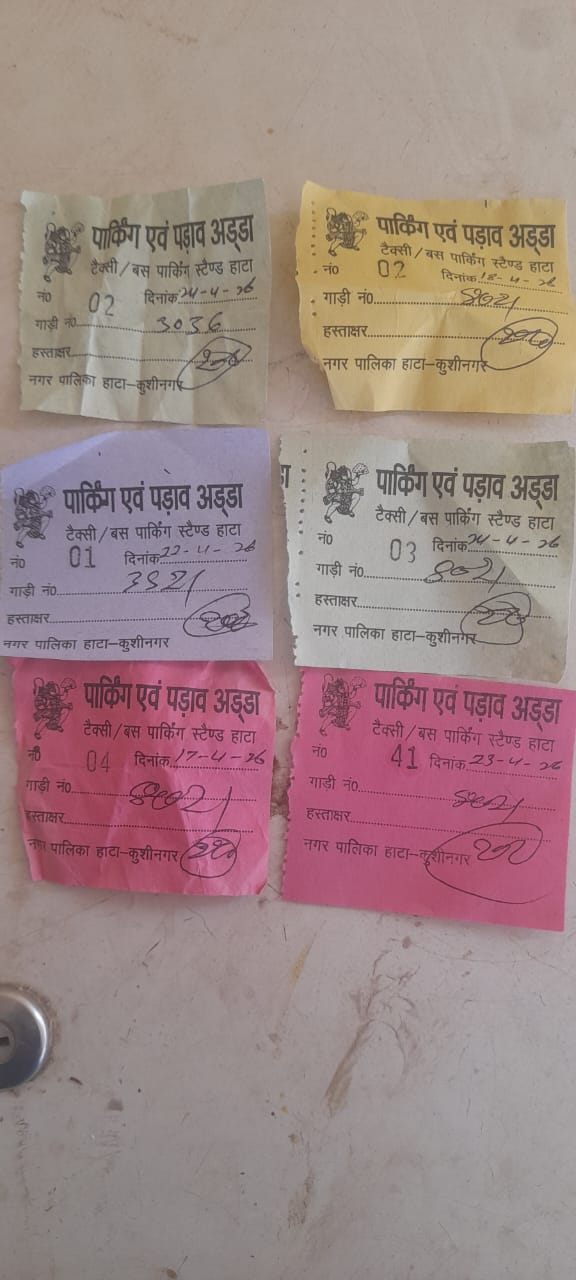 पार्किंग एवं पड़ाव अड्डा
टैक्सी/बस पार्किंग स्टैण्ड हाटा
नं० 02 दिनांक 24-4-26
गाड़ी नं० 3036
हस्ताक्षर
नगर पालिका हाटा–कुशीनगर
पार्किंग एवं पड़ाव अड्डा
टैक्सी/बस पार्किंग स्टैण्ड हाटा
नं० 02 दिनांक 18-4-26
गाड़ी नं०
हस्ताक्षर
नगर पालिका हाटा–कुशीनगर
पार्किंग एवं पड़ाव अड्डा
टैक्सी/बस पार्किंग स्टैण्ड हाटा
नं० 01 दिनांक 22-4-26
गाड़ी नं०
हस्ताक्षर
नगर पालिका हाटा–कुशीनगर
पार्किंग एवं पड़ाव अड्डा
टैक्सी/बस पार्किंग स्टैण्ड हाटा
नं० 03 दिनांक 24-4-26
गाड़ी नं०
हस्ताक्षर
नगर पालिका हाटा–कुशीनगर
पार्किंग एवं पड़ाव अड्डा
टैक्सी/बस पार्किंग स्टैण्ड हाटा
नं० 04 दिनांक 17-4-26
गाड़ी नं०
हस्ताक्षर
नगर पालिका हाटा–कुशीनगर
पार्किंग एवं पड़ाव अड्डा
टैक्सी/बस पार्किंग स्टैण्ड हाटा
नं० 41 दिनांक 23-4-26
गाड़ी नं०
हस्ताक्षर
नगर पालिका हाटा–कुशीनगर